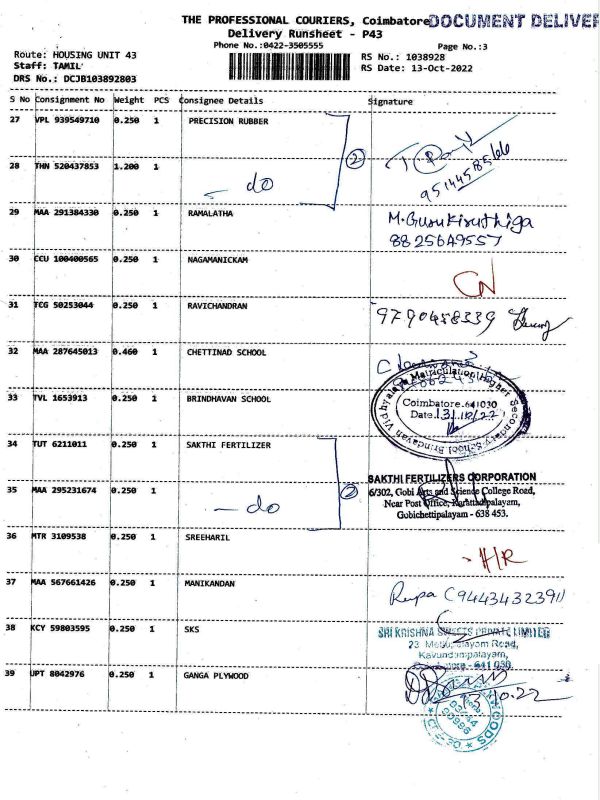 THE PROFESSIONAL COURIERS, Coimbatore DOCUMENT DELIVER
Delivery Runsheet - P43
Phone No.:0422-3505555
Page No.:3
Route: HOUSING UNIT 43
Staff: TAMIL
DRS No.: DCJB103892803
RS No.: 1038928
RS Date: 13-Oct-2022
S No Consignment No Weight PCS Consignee Details Signature
27 VPL 939549710 0.250 1 PRECISION RUBBER
28 THN 520437853 1.200 1 - do 2
29 MAA 291384330 0.250 1 RAMALATHA M.Gurukiruthiga
8825649557
30 CCU 100400565 0.250 1 NAGAMANICKAM CN
31 TCG 50253044 0.250 1 RAVICHANDRAN 9790458339
32 MAA 287645013 0.460 1 CHETTINAD SCHOOL
33 TVL 1653913 0.250 1 BRINDHAVAN SCHOOL
Brindavan Vidhyalaya Matriculation Higher Secondary School
Coimbatore-641030
Date 13/10/22
34 TUT 6211011 0.250 1 SAKTHI FERTILIZER
35 MAA 295231674 0.250 1 - do 2
SAKTHI FERTILIZERS CORPORATION
6/302, Gobi Arts and Science College Road,
Near Post Office, Karattadipalayam,
Gobichettipalayam - 638 453.
36 MTR 3109538 0.250 1 SREEHARIL - H/R
37 MAA 567661426 0.250 1 MANIKANDAN Rupa (9443432391)
38 KCY 59803595 0.250 1 SKS
SRI KRISHNA SWEETS PRIVATE LIMITED
23 Mettupalayam Road,
Kavundampalayam,
Coimbatore - 641 030
39 UPT 8042976 0.250 1 GANGA PLYWOOD
13.10.22